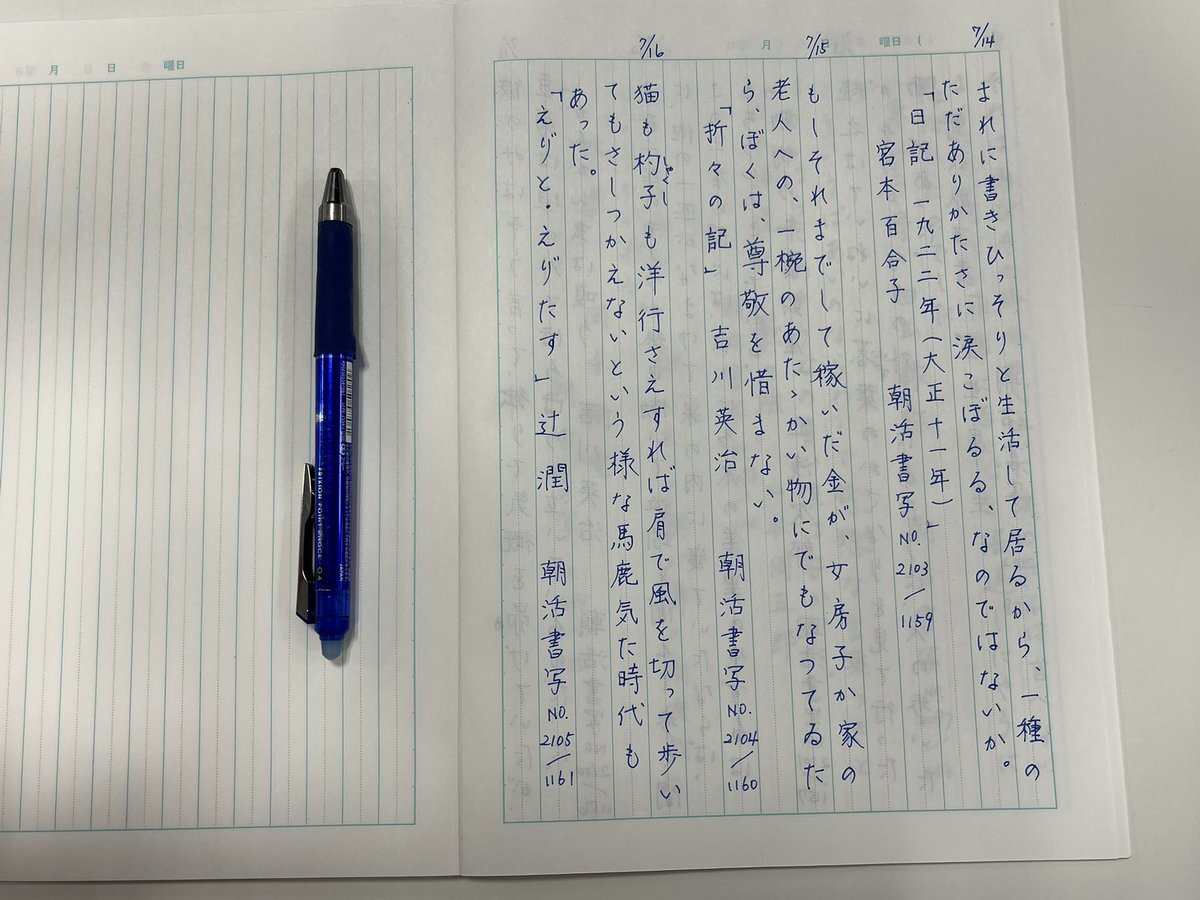 7/14
まれに書きひっそりと生活して居るから、一種の
ただありかたさに涙こぼるる、なのではないか。
「日記 一九二二年(大正十一年)」
宮本百合子 朝活書写 NO. 2103/1159
7/15
もしそれまでして稼いだ金が、女房子か家の
老人への、一椀のあたゝかい物にでもなつてゐるた
ら、ぼくは、尊敬を惜まない。
「折々の記」 吉川英治 朝活書写 NO. 2104/1160
7/16
猫も杓子も洋行さえすれば肩で風を切って歩い
しゃくし
てもさしつかえないという様な馬鹿気た時代も
あった。
「えりと・えりたす」 辻 潤 朝活書写 NO. 2105/1161
月 曜日
月 日 曜日
FRIXION POINT KNOCK 04
JAPAN